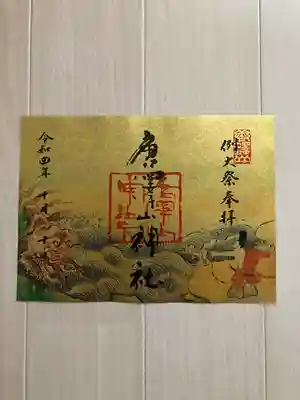 例大祭奉拝
唐澤山神社
令和四年 十月